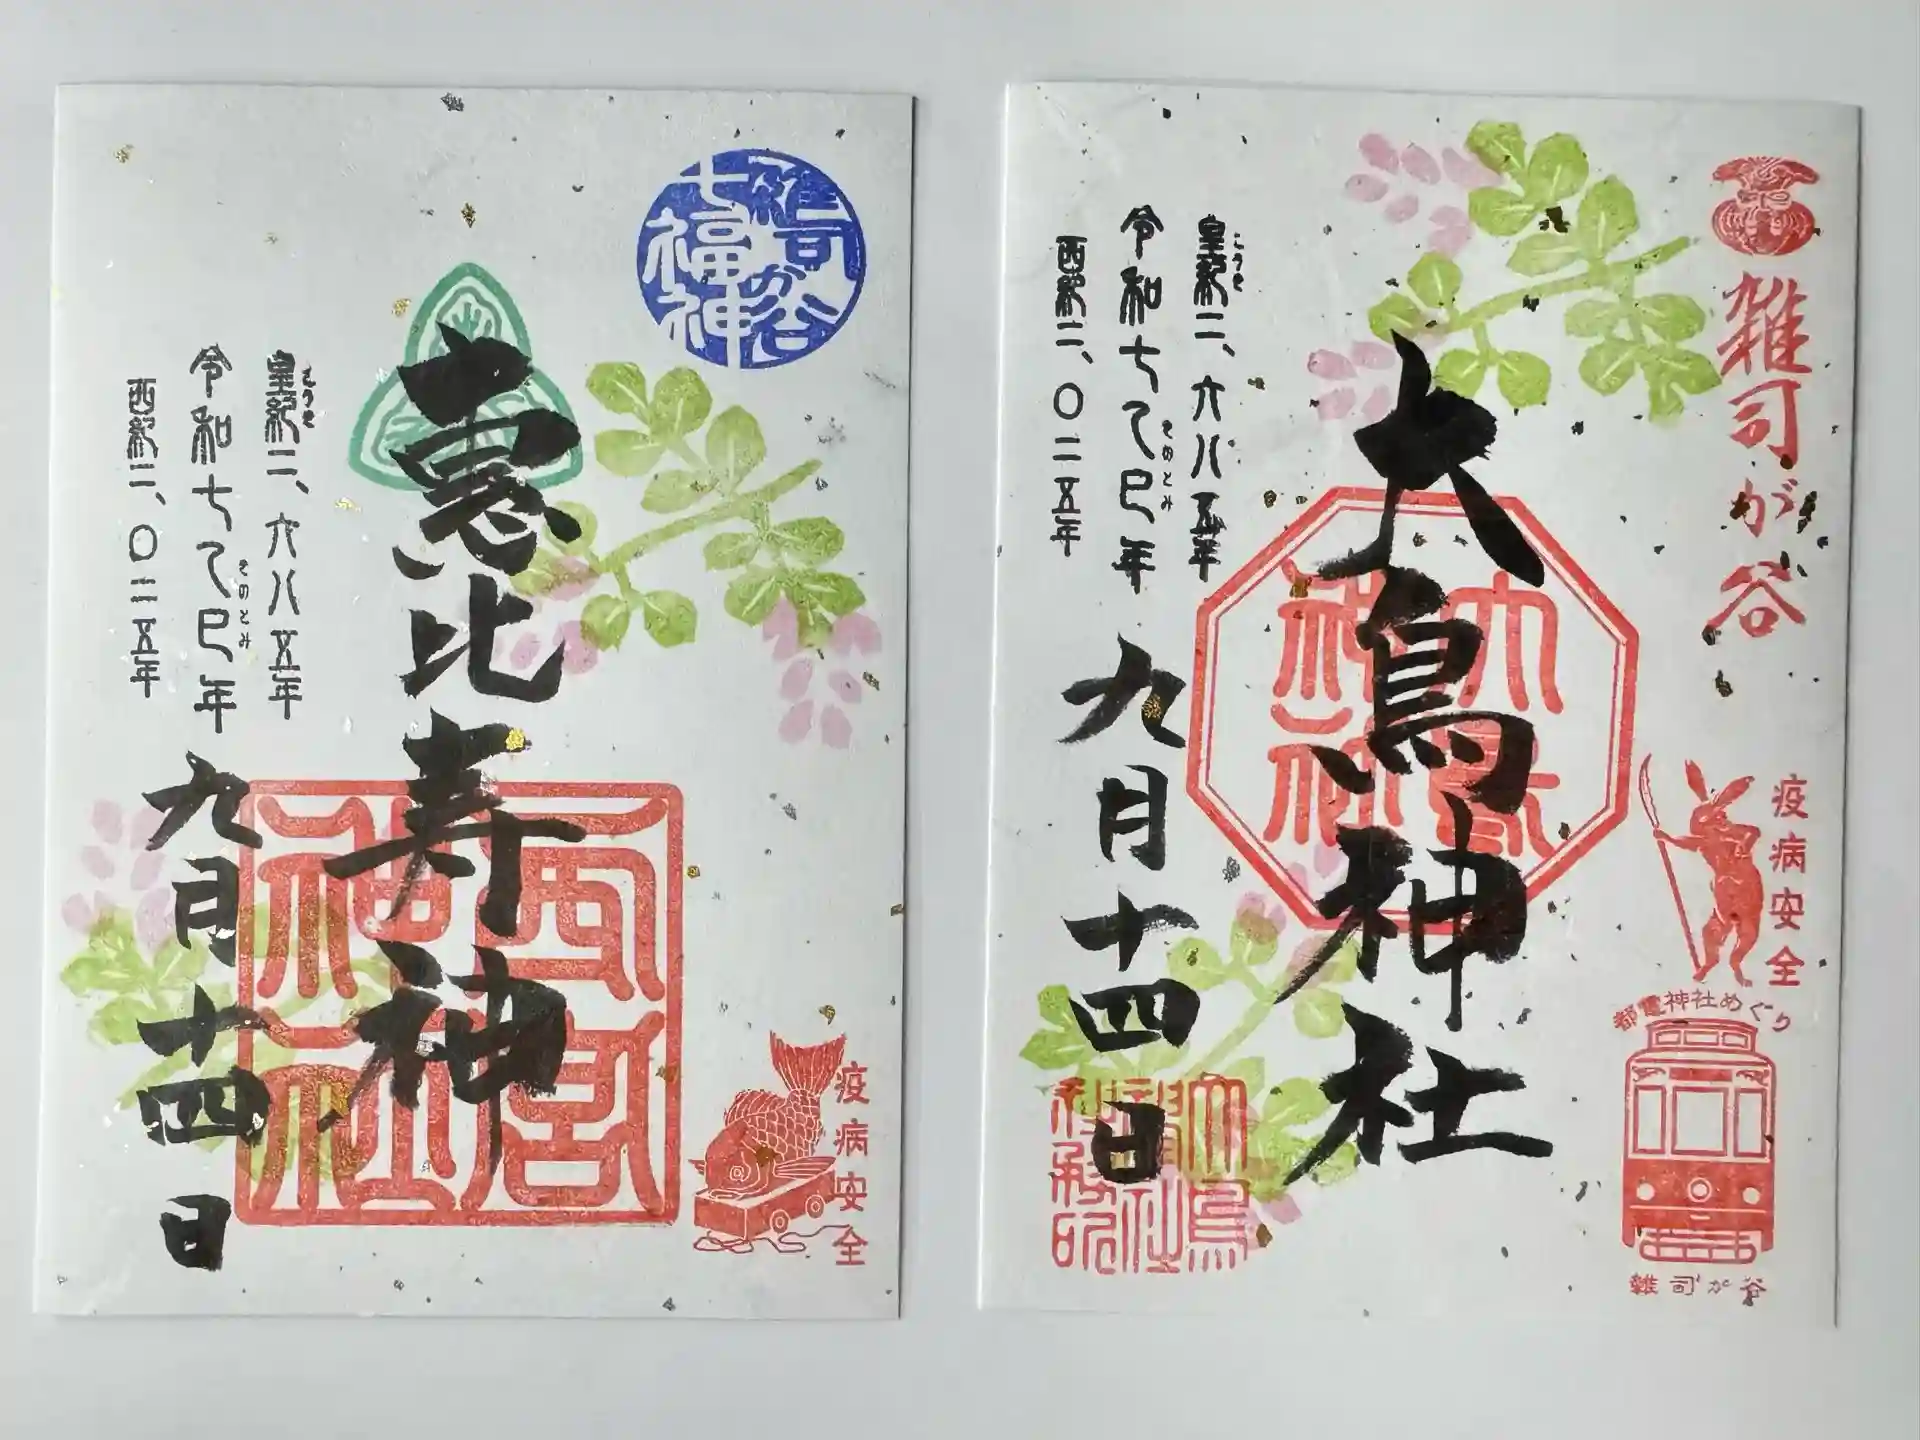 雑司が谷
七福神
恵比寿神
西宮
神社
皇紀二、六八五年
こうき
令和七乙巳年
きのとみ
西紀二、〇二五年
九月十四日
疫病安全
雑司が谷
大鳥神社
大鳥
神社
皇紀二、六八五年
こうき
令和七乙巳年
きのとみ
西紀二、〇二五年
九月十四日
疫病安全
都電神社めぐり
雑司が谷